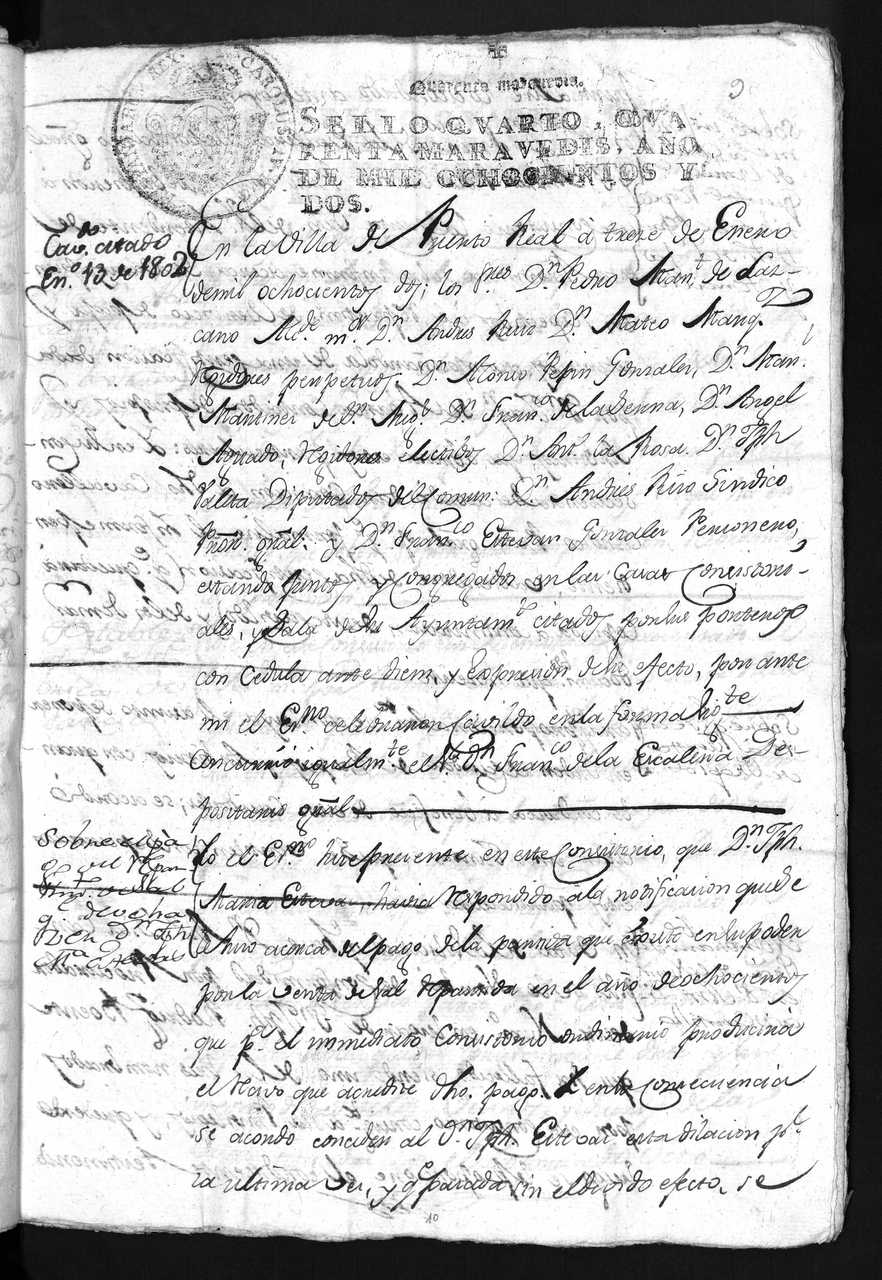 Quarenta maravedis.
SELLO QVARTO, QVA
RENTA MARAVEDIS, AÑO
DE MIL OCHOCIENTOS Y
DOS.
CAROLUS IV
Cavo. citado
Eno. 13 de 1802
En la Villa de Puerto Real à trece de Enero
demil ochocientos dos; los Sres. Dn. Pedro Man.l de Laz-
cano Alde. mor. Dn. Andres Ruiz Dn. Mateo Marqz.
Rexidores perpetuos, Dn. Alonso Pepin Gonzalez, Dn. Man.l
Martinez de Sn. Migl. Dn. Franco. de la Serna, Dn. Angel
Aguado, Rexidores electivos Dn. Anto. la Rosa. Dn. Jph
Diputados del Comun: Dn. Andres Rizo Sindico
Pror. gñal. y Dn. Franco. Estevan Gonzalez Personero,
estando juntos y congregados en las casas Consistori-
ales, y Sala de su Ayuntamto. citados por sus porteros
con Cedula ante diem y expresion de su efecto, por ante
mi el Esno. celebraron Cavildo en la forma sigte
Concurrió igualmte. el Sr. Dn. Franco. de la Escalera De-
positario gñal
Sobre el pa
go
que devε ha
zer Dn. Jph
Ma. Esteva
Yo el Esno. hice presente en este Consistorio, que Dn. Jph.
Maria Esteva, havia respondido a la notificacion que se
le hizo acerca del pago de la partida que existe en su poder
por la venta de sal repartida en el año de ochocientos
que pa. el immediato Consistorio ordinario produciria
el Recivo que acredite dho. pago. Y en su Consecuencia
se acordo conceder al Dn. Jph. Esteva esta dilacion por
la ultima vez, y qe. pasada sin el devido efecto, se
10